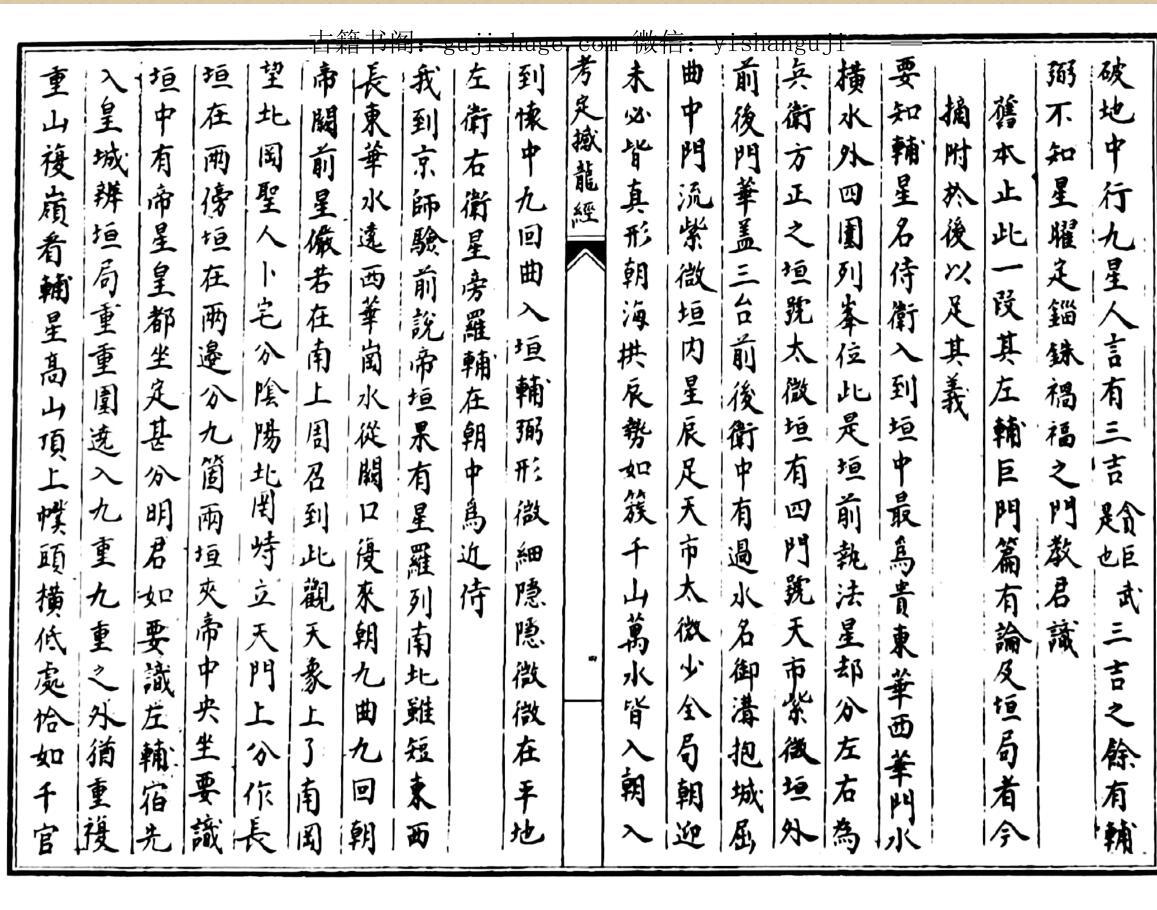 古籍书阁：gujishuge.com 微信：yishanguji
破地中行九星人言有三吉貪巨武是也三吉之餘有輔
弼不知星曜定錙銖禍福之門教君識
舊本止此一段其左輔巨門篇有論及垣局者今
摘附於後以足其義
要知輔星名侍衛入到垣中最爲貴東華西華門水
橫水外四圍列峯位此是垣前執法星却分左右為
兵衛方正之垣號太微垣有四門號天市紫微垣外
前後門華盖三台前後衛中有過水名御溝抱城屈
曲中門流紫微垣内星辰足天市太微少全局朝迎
未必皆真形朝海拱辰勢如簇千山萬水皆入朝入
考定撼龍經
四
到懷中九回曲入垣輔弼形微細隠隠微微在平地
左衛右衛星旁羅輔在朝中爲近侍
我到京師驗前說帝垣果有星羅列南北雖短東西
長東華水遶西華崗水從闕口復來朝九曲九回朝
帝闕前星儼若在南上周召到此觀天象上了南岡
望北岡聖人卜宅分陰陽北岡峙立天門上分作長
垣在兩傍垣在兩邊分九箇兩垣夾帝中央坐要識
垣中有帝星皇都坐定甚分明君如要識左輔宿先
入皇城辨垣局重重圍遶入九重九重之外猶重複
重山複嶺看輔星高山頂上幞頭橫低處恰如千官